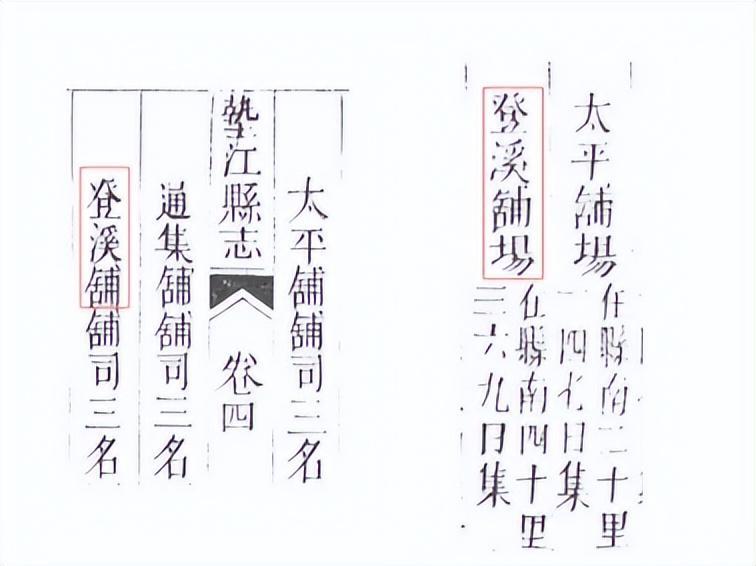 太平舖場
在縣南二十里
一四七日集
登溪舖場
在縣南四十里
三六九日集
太平舖舖司三名
墊江縣志 卷四
通集舖舖司三名
登溪舖舖司三名